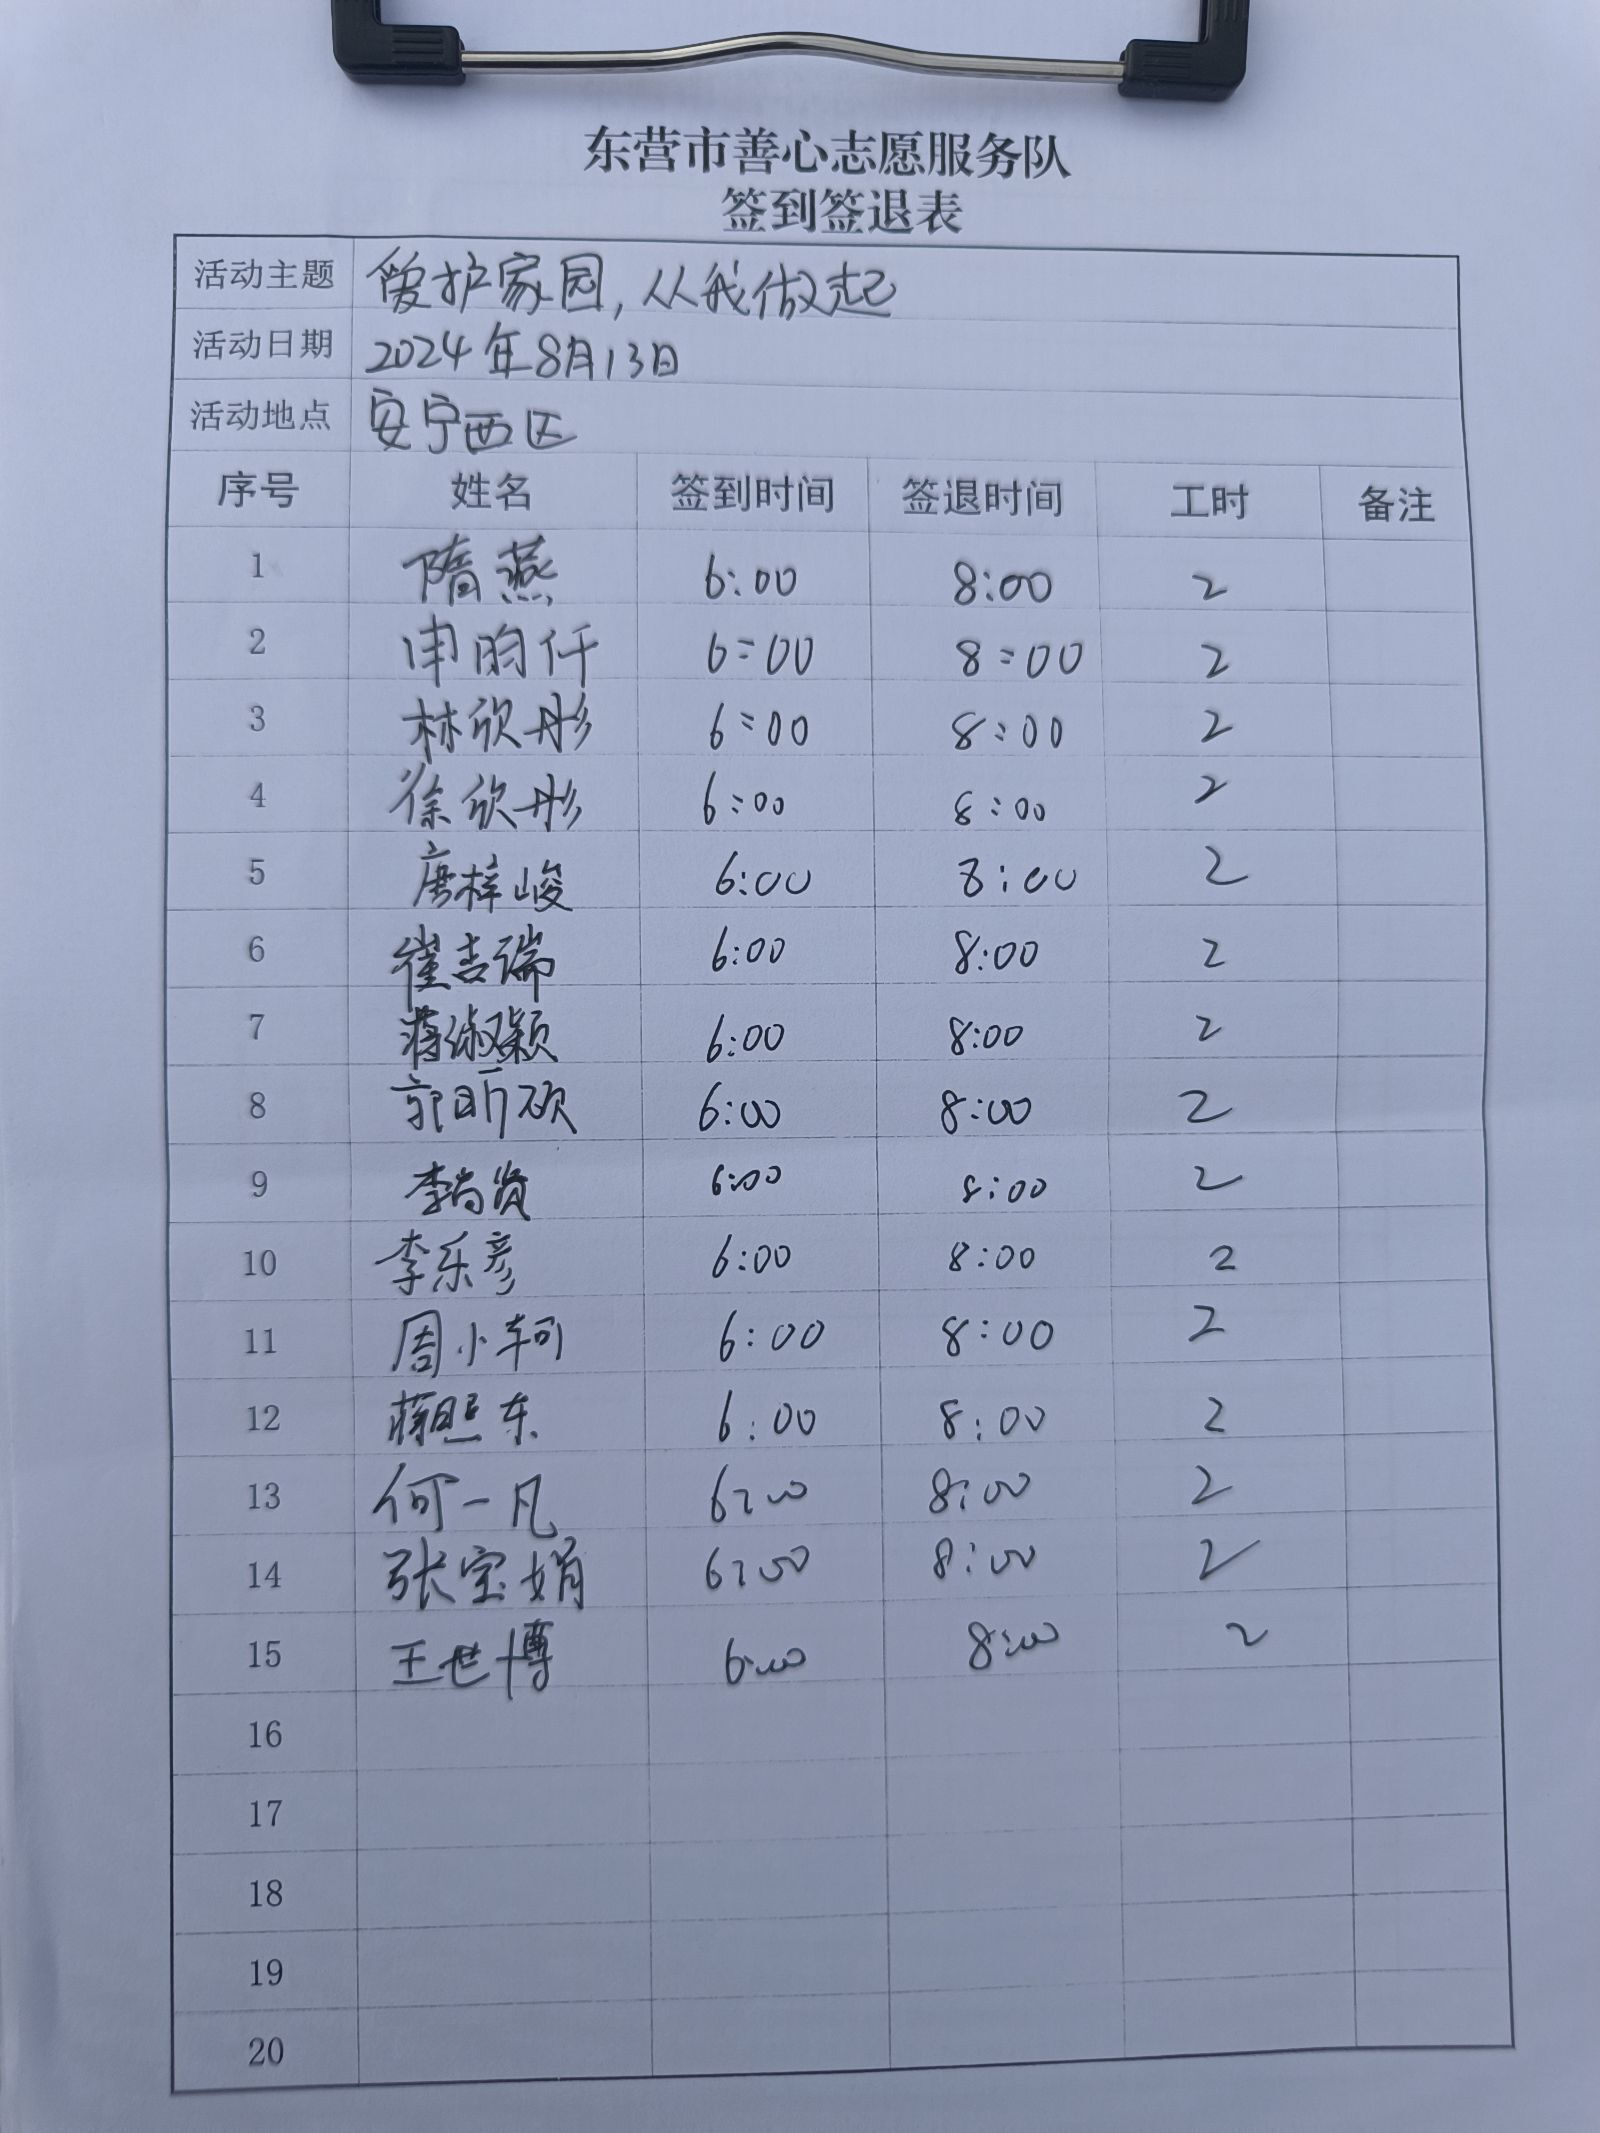 东营市善心志愿服务队
签到签退表
活动主题 爱护家园，从我做起
活动日期 2024年8月13日
活动地点 安宁西区
序号 姓名 签到时间 签退时间 工时 备注
1 隋燕 6:00 8:00 2
2 申昀仟 6:00 8:00 2
3 林欣彤 6:00 8:00 2
4 徐欣彤 6:00 8:00 2
5 唐梓峻 6:00 8:00 2
6 崔吉瑞 6:00 8:00 2
7 蒋淑颖 6:00 8:00 2
8 郭昕硕 6:00 8:00 2
9 李尚贤 6:00 8:00 2
10 李乐彦 6:00 8:00 2
11 周小轲 6:00 8:00 2
12 蒋照东 6:00 8:00 2
13 何一凡 6:00 8:00 2
14 张宝娟 6:00 8:00 2
15 王世博 6:00 8:00 2
16
17
18
19
20